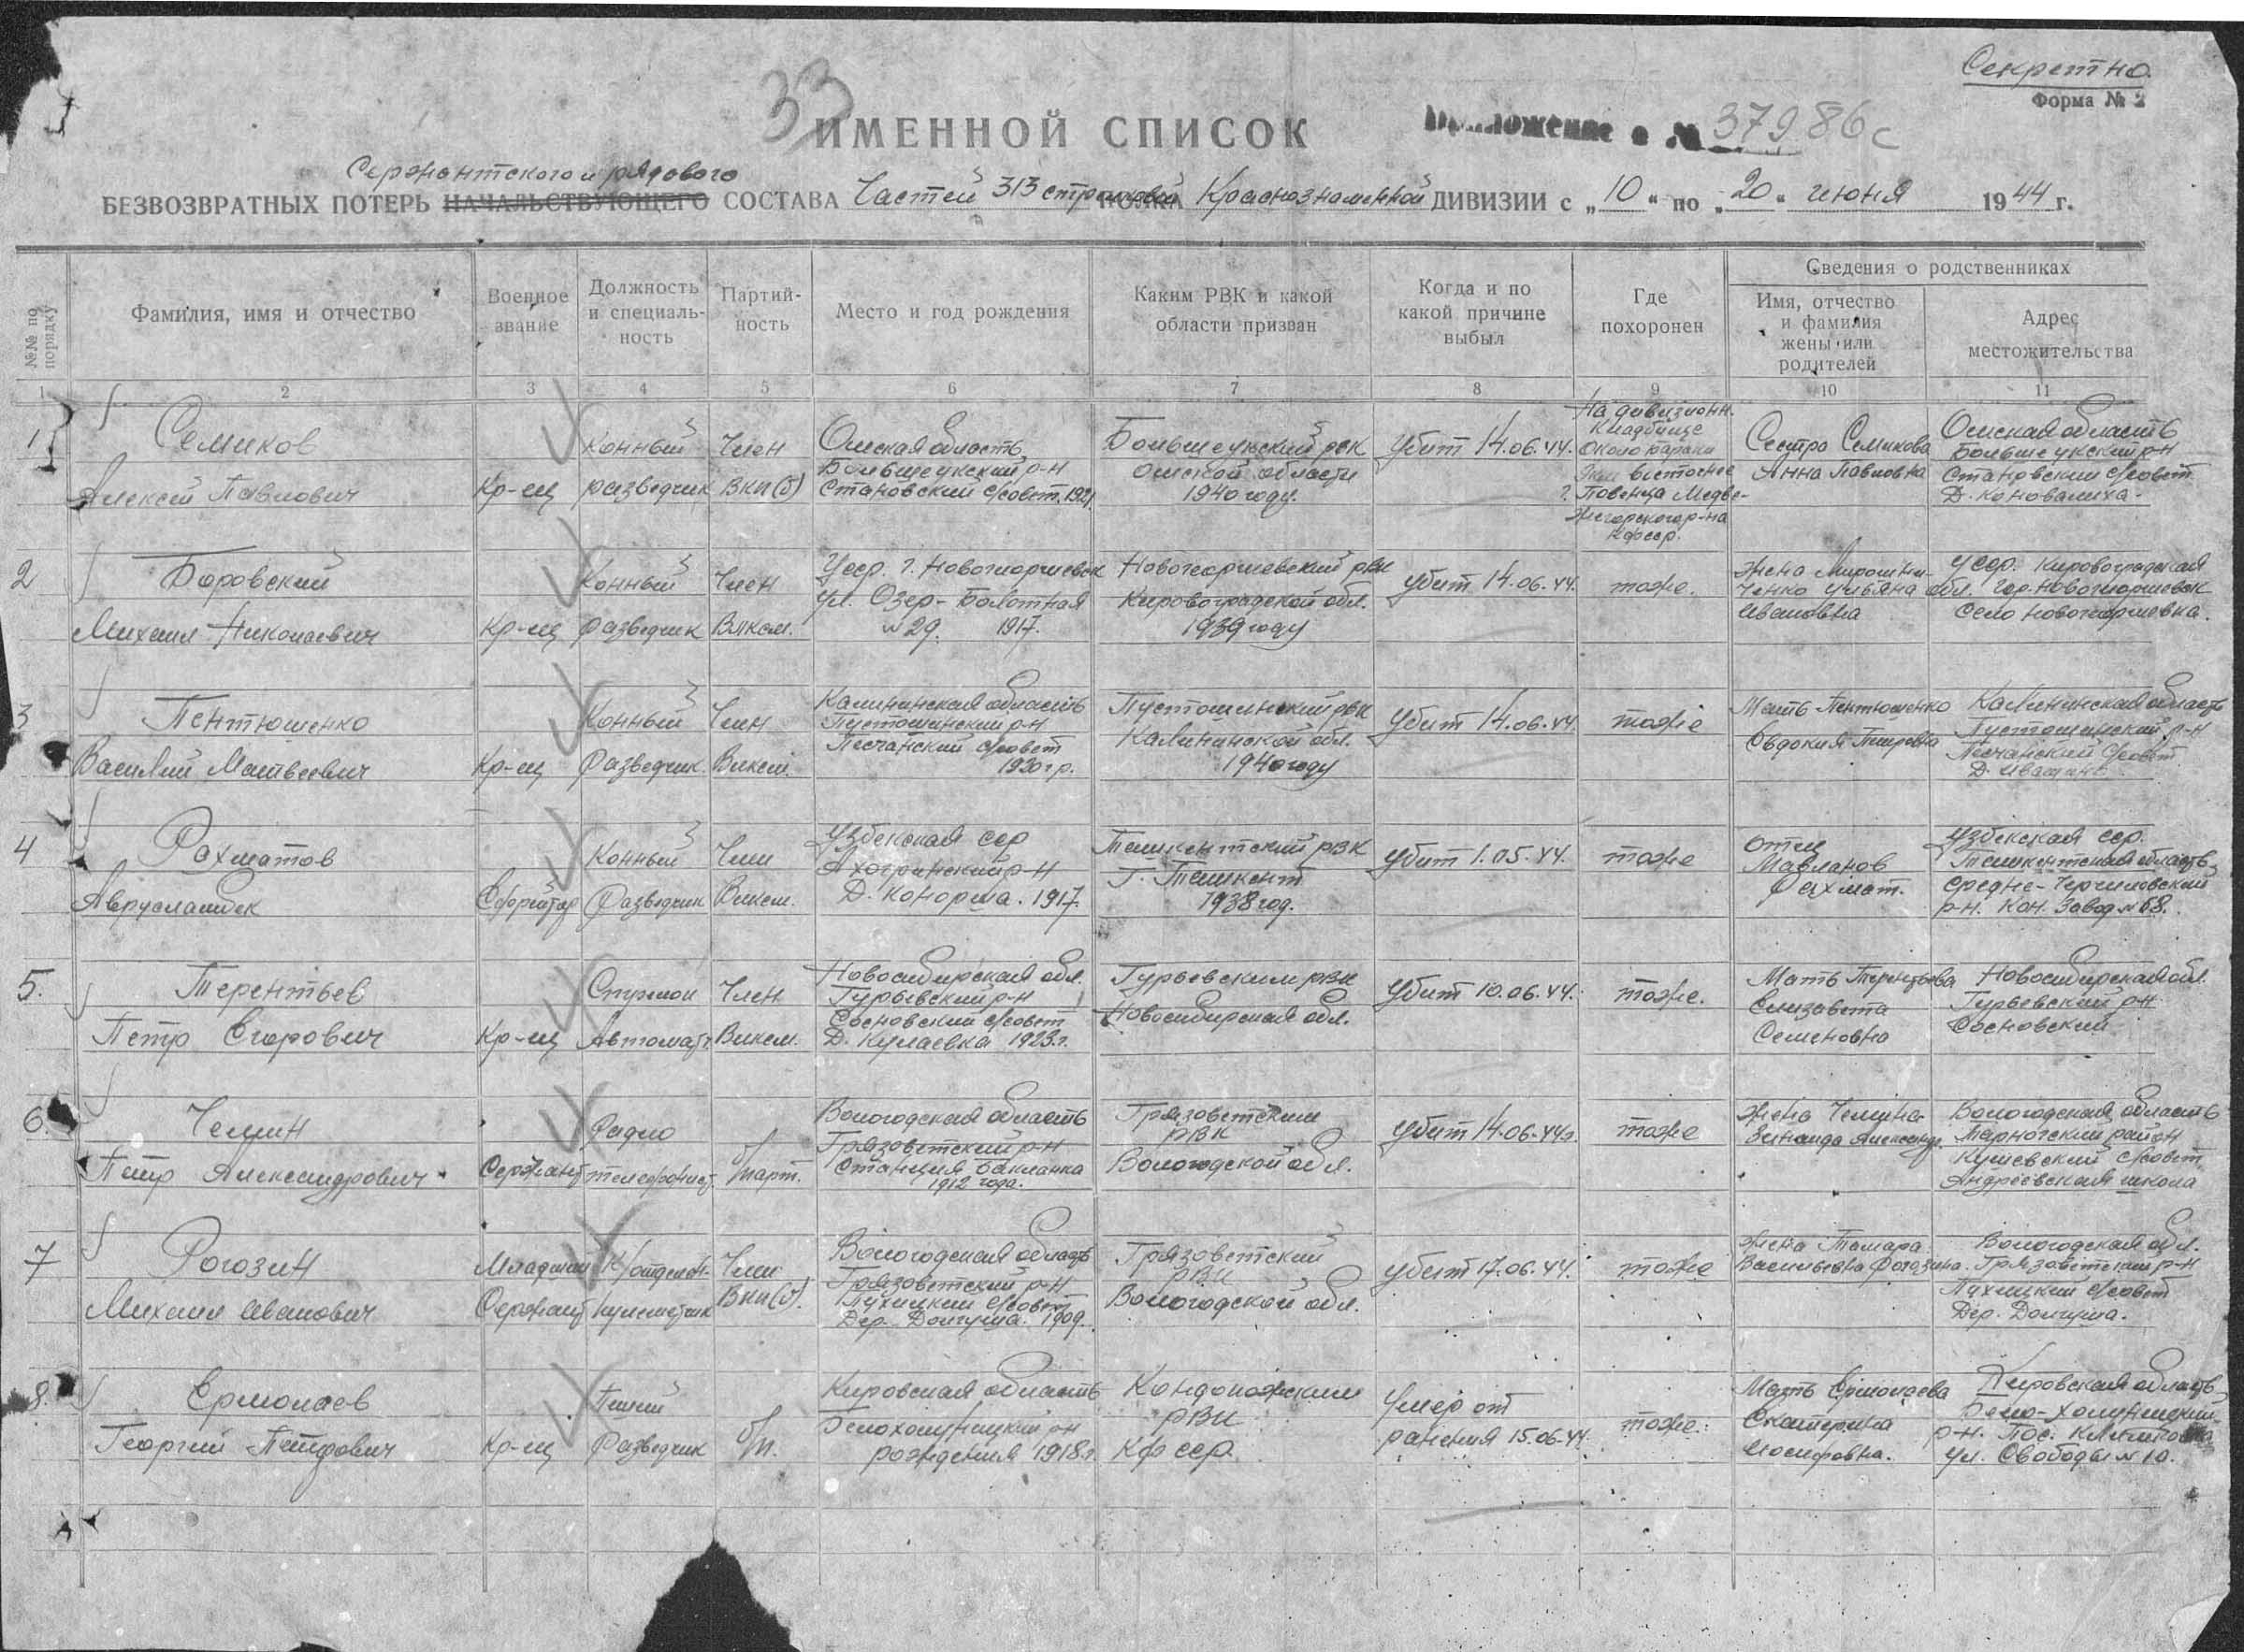 Секретно.
Форма № 2
33
ИМЕННОЙ СПИСОК
Приложение к № 37986с
Сержантского и рядового
БЕЗВОЗВРАТНЫХ ПОТЕРЬ НАЧАЛЬСТВУЮЩЕГО СОСТАВА Частей 313 стрелковой ПОЛКА Краснознаменной ДИВИЗИИ с „10“ по „20“ июня 1944 г.
№№ по порядку
Фамилия, имя и отчество
Военное звание
Должность и специаль-
ность
Партий-
ность
Место и год рождения
Каким РВК и какой
области призван
Когда и по
какой причине
выбыл
Где
похоронен
Сведения о родственниках
Имя, отчество
и фамилия
жены или
родителей
Адрес
местожительства
1 2 3 4 5 6 7 8 9 10 11
1
Семиков
Алексей Павлович
Кр-ец
Конный
разведчик
Член
ВКП(б)
Омская область
Большеукский р-н
Становский с/совет. 1921
Большеукский рвк
Омской области
1940 году.
Убит 14.06.44.
На дивизионн.
Кладбище
около
восточнее
г. Повенца Медве-
жегорского р-на
Кфсср.
Сестра Семикова
Анна Павловна
Омская область
Большеукский р-н
Становский с/совет
Д. Коновалиха.
2
Боровский
Михаил Николаевич
Кр-ец
Конный
разведчик
Член
Влксм.
Усср. г. Новогеоргиевск
ул. Озер-Болотная
№29. 1917.
Новогеоргиевский рвк
Кировоградской обл.
1939 году
Убит 14.06.44.
тоже.
Жена Мирошни-
ченко Ульяна
Ивановна
Усср. Кировоградская
обл. гор. Новогеоргиевск
село Новогеоргиевка.
3
Пентюшенко
Василий Матвеевич
Кр-ец
Конный
Разведчик
Член
Влксм.
Калининская область
Пустошинский р-н
Песчанский с/совет
1920 г р.
Пустошинский рвк
Калининской обл.
1940 году
Убит 14.06.44
тоже
Мать Пентюшенко
Евдокия
Калининская область
Пустошинский р-н
Песчанский с/совет
4
Рахматов
Ефрейтор
Конный
Разведчик
Член
Влксм.
Узбекская сср
1917.
Ташкентский РВК
г. Ташкент
1938 год.
Убит 1.05.44.
тоже
Отец
Мавланов
Рахмат.
Узбекская сср.
Ташкентская область
Средне-Чирчиковский
р-н. Кон. Завод №68.
5.
Терентьев
Петр Егорович
Кр-ец
Стрелок
Автомат.
Член
Влксм.
Новосибирская обл.
Гурьевский р-н
Сосновский с/совет
Д. Кулаевка 1923 г.
Гурьевским РВК
Новосибирская обл.
Убит 10.06.44.
тоже.
Мать Терентьева
Елизавета
Семеновна
Новосибирская обл.
Гурьевский р-н
Сосновский
6.
Чемин
Петр Александрович
Сержант
Радио
телефонист.
б/парт.
Вологодская область
Грязовецкий р-н
Станция Бакланка
1912 года.
Грязовецким
РВК
Вологодской обл.
Убит 14.06.44г.
тоже
Жена Чемина
Зинаида Александр.
Вологодская область
Тарногский район
с/совет
Андреевская школа
7
Рогозин
Михаил Иванович
Младший
Сержант
К/отделен.
пулеметчик
Член
ВКП(б).
Вологодская область
Грязовецкий р-н
с/совет
Дер. Долгуша. 1909.
Грязовецкий
РВК
Вологодской обл.
Убит 17.06.44.
тоже
Жена Тамара
Васильевна Рогозина.
Вологодская обл.
Грязовецкий р-н
с/совет
Дер. Долгуша.
8.
Ермолаев
Георгий Петрович
Кр-ец
Пеший
Разведчик
б/п.
Кировская область
Белохолуницкий р-н
рождения 1918 г.
Кондопожским
РВК
Кф сср.
Умер от
ранения 15.06.44
тоже.
Мать Ермолаева
Екатерина
Иосифовна.
Кировская область
Бело-Холуницкий
р-н. Пос. Климковка
ул. Свободы №10.